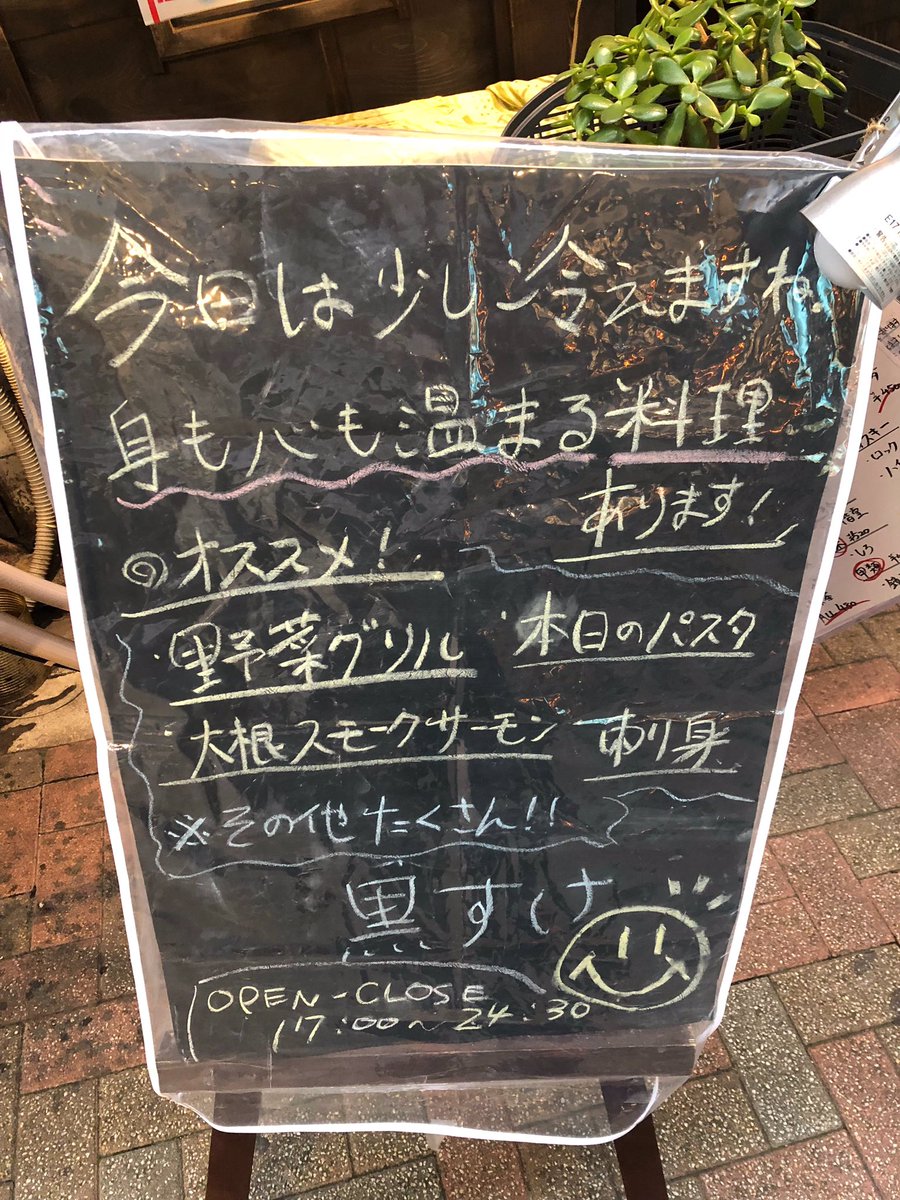 今日は少し冷えますね。
身も心も温まる料理
あります!
◎オススメ!
・野菜グリル ・本日のパスタ
・大根スモークサーモン 刺身
※その他たくさん!!
黒すけ
OPEN-CLOSE
17:00〜24:30
E17
ロック